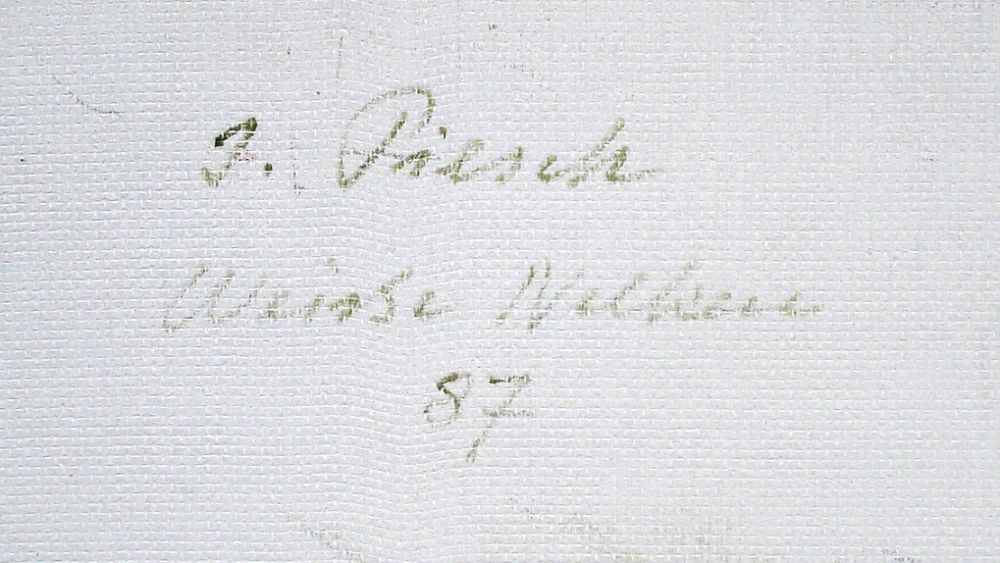 J. Piesch
Weiße Nelken
87